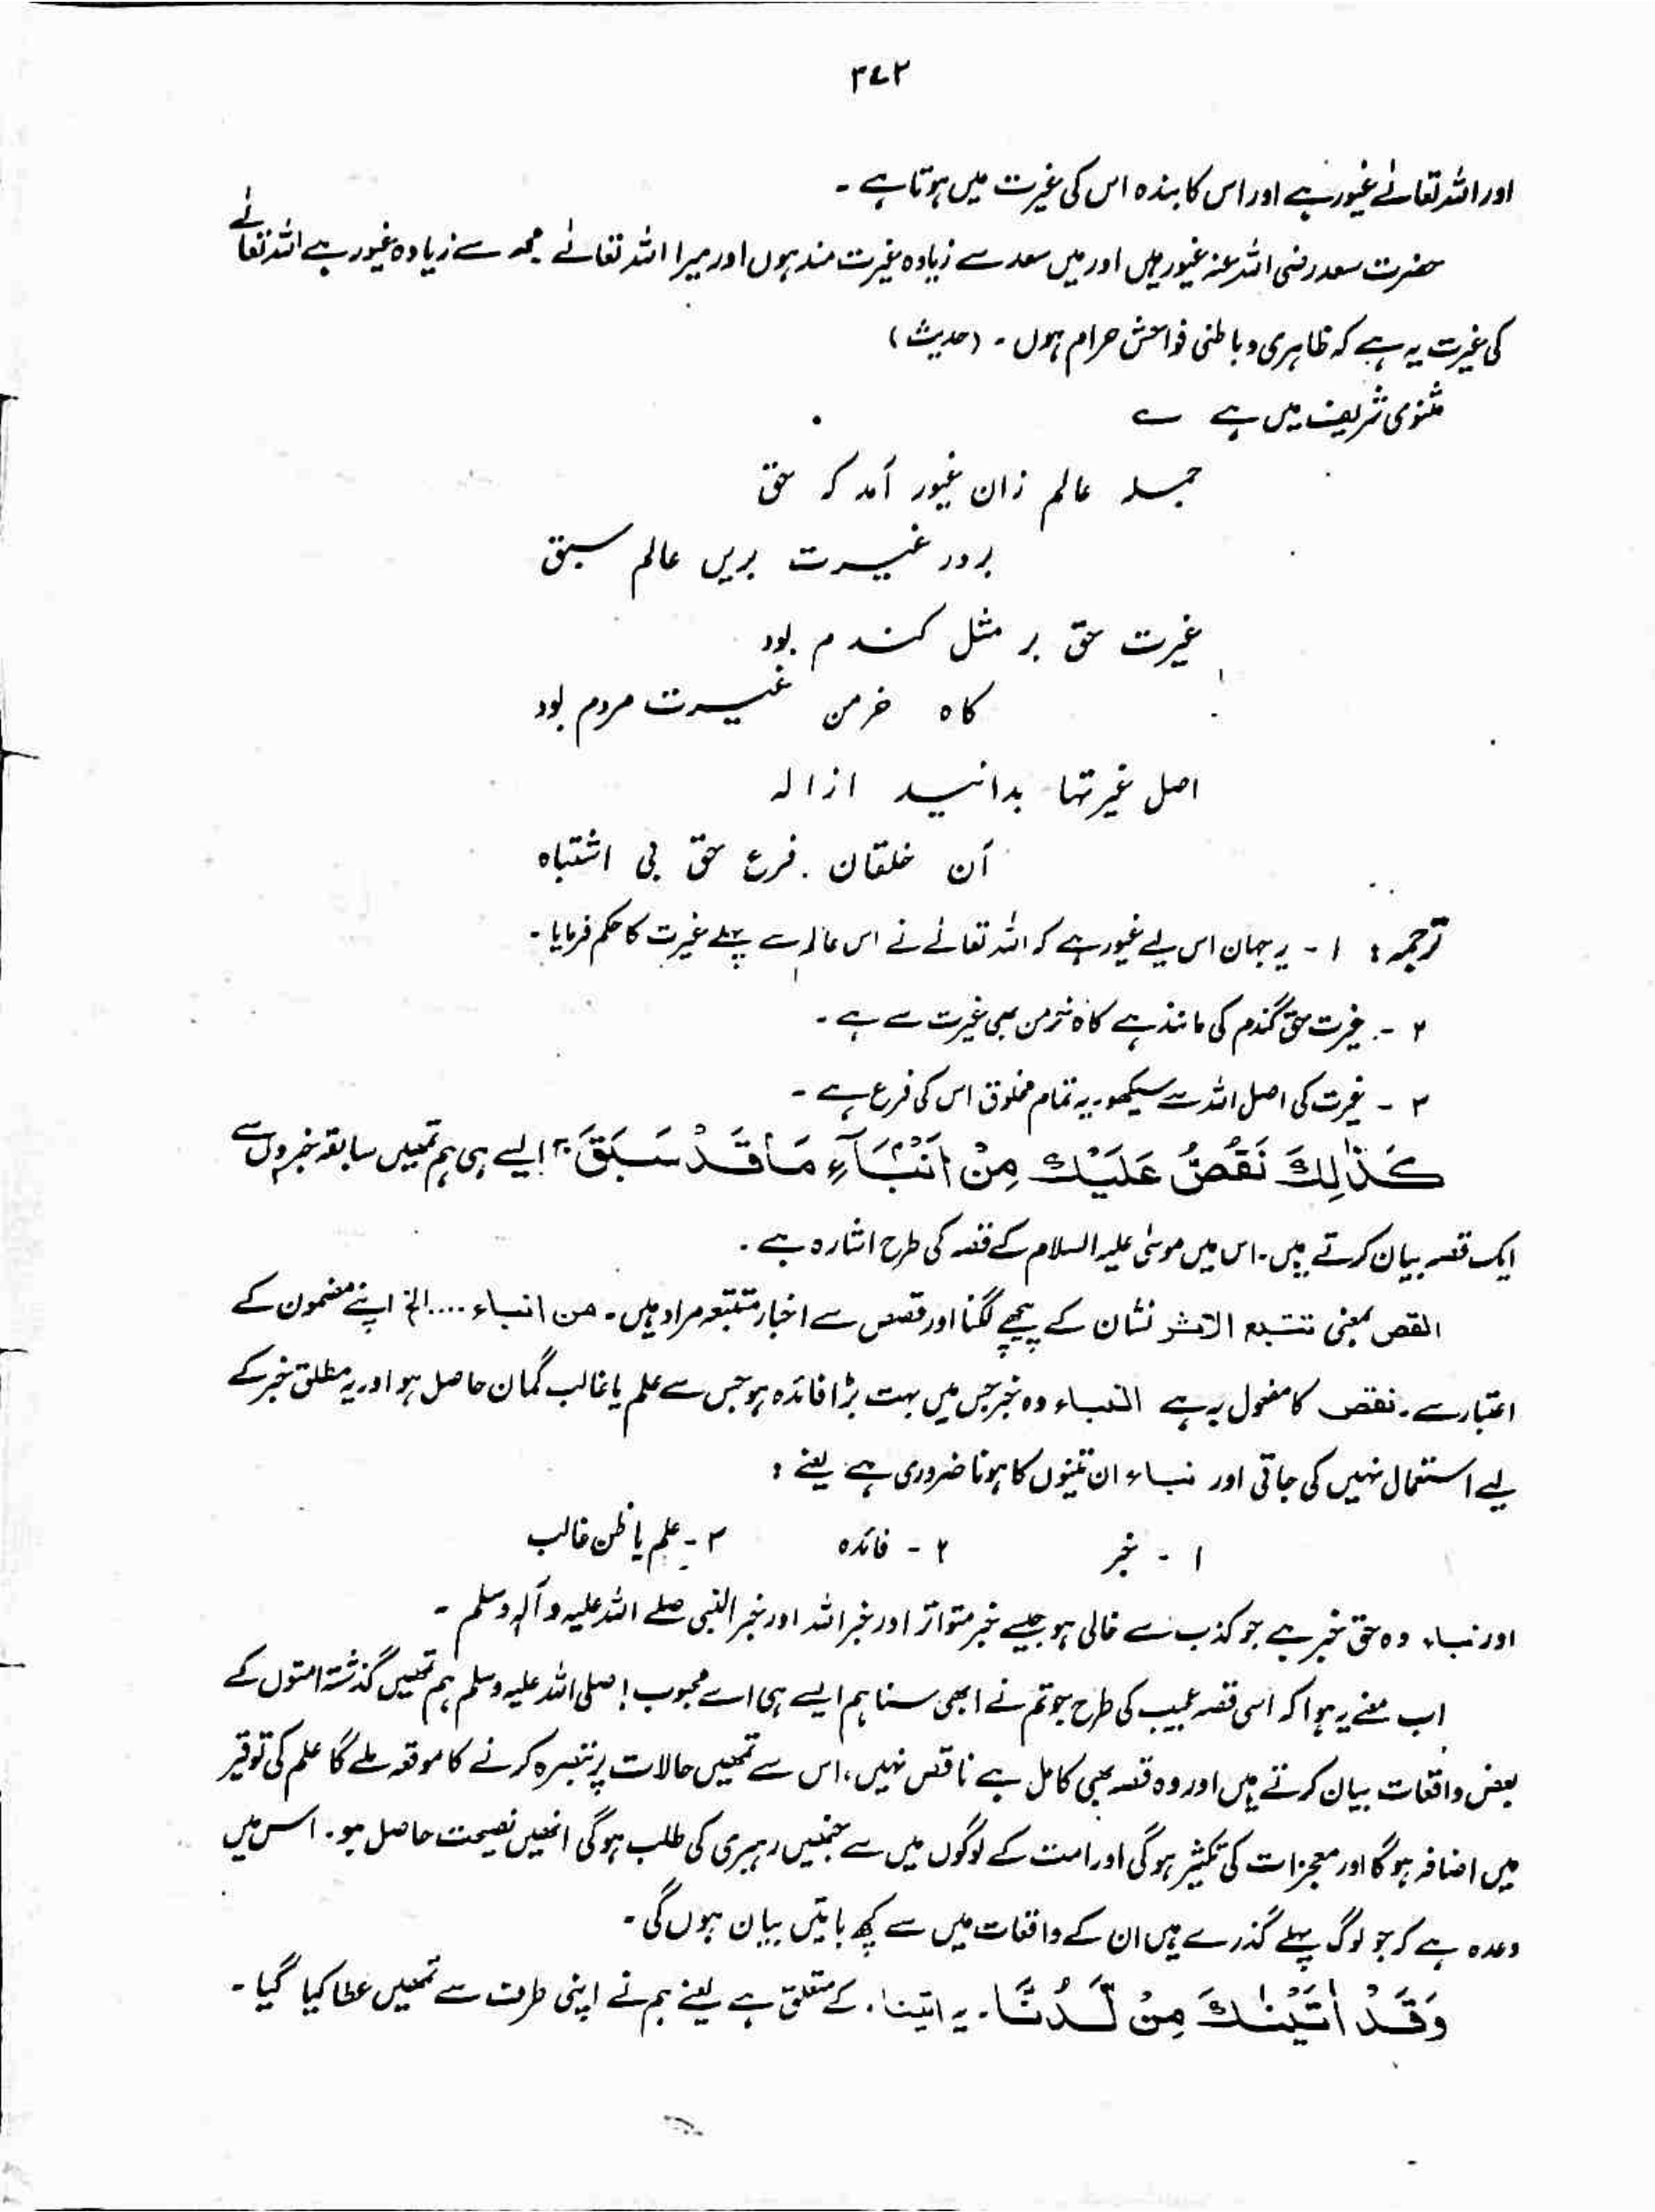 ۳۷۲
اور اللہ تعالےٰ غیور ہے اور اس کا بندہ اس کی غیرت میں ہوتا ہے ۔
حضرت سعد رضی اللہ عنہ غیور ہیں اور میں سعد سے زیادہ غیرت مند ہوں اور میرا اللہ تعالےٰ مجھ سے زیادہ غیور ہے اللہ تعالےٰ
کی غیرت یہ ہے کہ ظاہری و باطنی فواحش حرام ہوں ۔ (حدیث)
مثنوی شریف میں ہے ؎
جملہ عالم زان غیور آمد کہ حق
برد در غیرت بریں عالم سبق
غیرت حق بر مثل گندم بود
کاہ خرمن غیرت مردم بود
اصل غیرتہا بدانید از الہ
آن خلقان فرع حق بی اشتباہ
ترجمہ : ۱ - یہ جہان اس لیے غیور ہے کہ اللہ تعالےٰ نے اس عالم سے پہلے غیرت کا حکم فرمایا ۔
۲ - غیرت حق گندم کی مانند ہے کاہ خرمن بھی غیرت سے ہے ۔
۳ - غیرت کی اصل اللہ سے سیکھو ۔ یہ تمام مخلوق اس کی فرع ہے ۔
كَذٰلِكَ نَقُصُّ عَلَيْكَ مِنْ اَنْۢبَآءِ مَا قَدْ سَبَقَ ۚ ایسے ہی ہم تمھیں سابقہ خبروں سے
ایک قصہ بیان کرتے ہیں ۔ اس میں موسٰی علیہ السلام کے قصہ کی طرح اشارہ ہے ۔
القص بمعنی تتبع الاثر نشان کے پیچھے لگنا اور قصص سے اخبار متتبعہ مراد ہیں ۔ من انباء .... الخ اپنے مضمون کے
اعتبار سے ۔ نقص کا مفعول بہ ہے النباء وہ خبر جس میں بہت بڑا فائدہ ہو جس سے علم یا غالب گمان حاصل ہو اور یہ مطلق خبر کے
لیے استعمال نہیں کی جاتی اور نباء ان تینوں کا ہونا ضروری ہے یعنے :
۱ - خبر ۲ - فائدہ ۳ - علم یا ظن غالب
اور نباء وہ حق خبر ہے جو کذب سے خالی ہو جیسے خبر متواتر اور خبر اللہ اور خبر النبی صلے اللہ علیہ و آلہ وسلم ۔
اب معنے یہ ہوا کہ اسی قصہ عجیب کی طرح جو تم نے ابھی سنا ہم ایسے ہی اے محبوب ! صلی اللہ علیہ وسلم ہم تمھیں گذشتہ امتوں کے
بعض واقعات بیان کرتے ہیں اور وہ قصہ بھی کامل ہے ناقص نہیں ، اس سے تمھیں حالات پر تبصرہ کرنے کا موقعہ ملے گا علم کی توقیر
میں اضافہ ہوگا اور معجزات کی تکثیر ہوگی اور امت کے لوگوں میں سے جنھیں رہبری کی طلب ہوگی انھیں نصیحت حاصل ہو ۔ اس میں
وعدہ ہے کہ جو لوگ پہلے گذرے ہیں ان کے واقعات میں سے کچھ باتیں بیان ہوں گی ۔
وَقَدْ اٰتَيْنٰكَ مِنْ لَّدُنَّا ۔ یہ اٰتینا ۔ کے متعلق ہے یعنے ہم نے اپنی طرف سے تمھیں عطا کیا گیا ۔